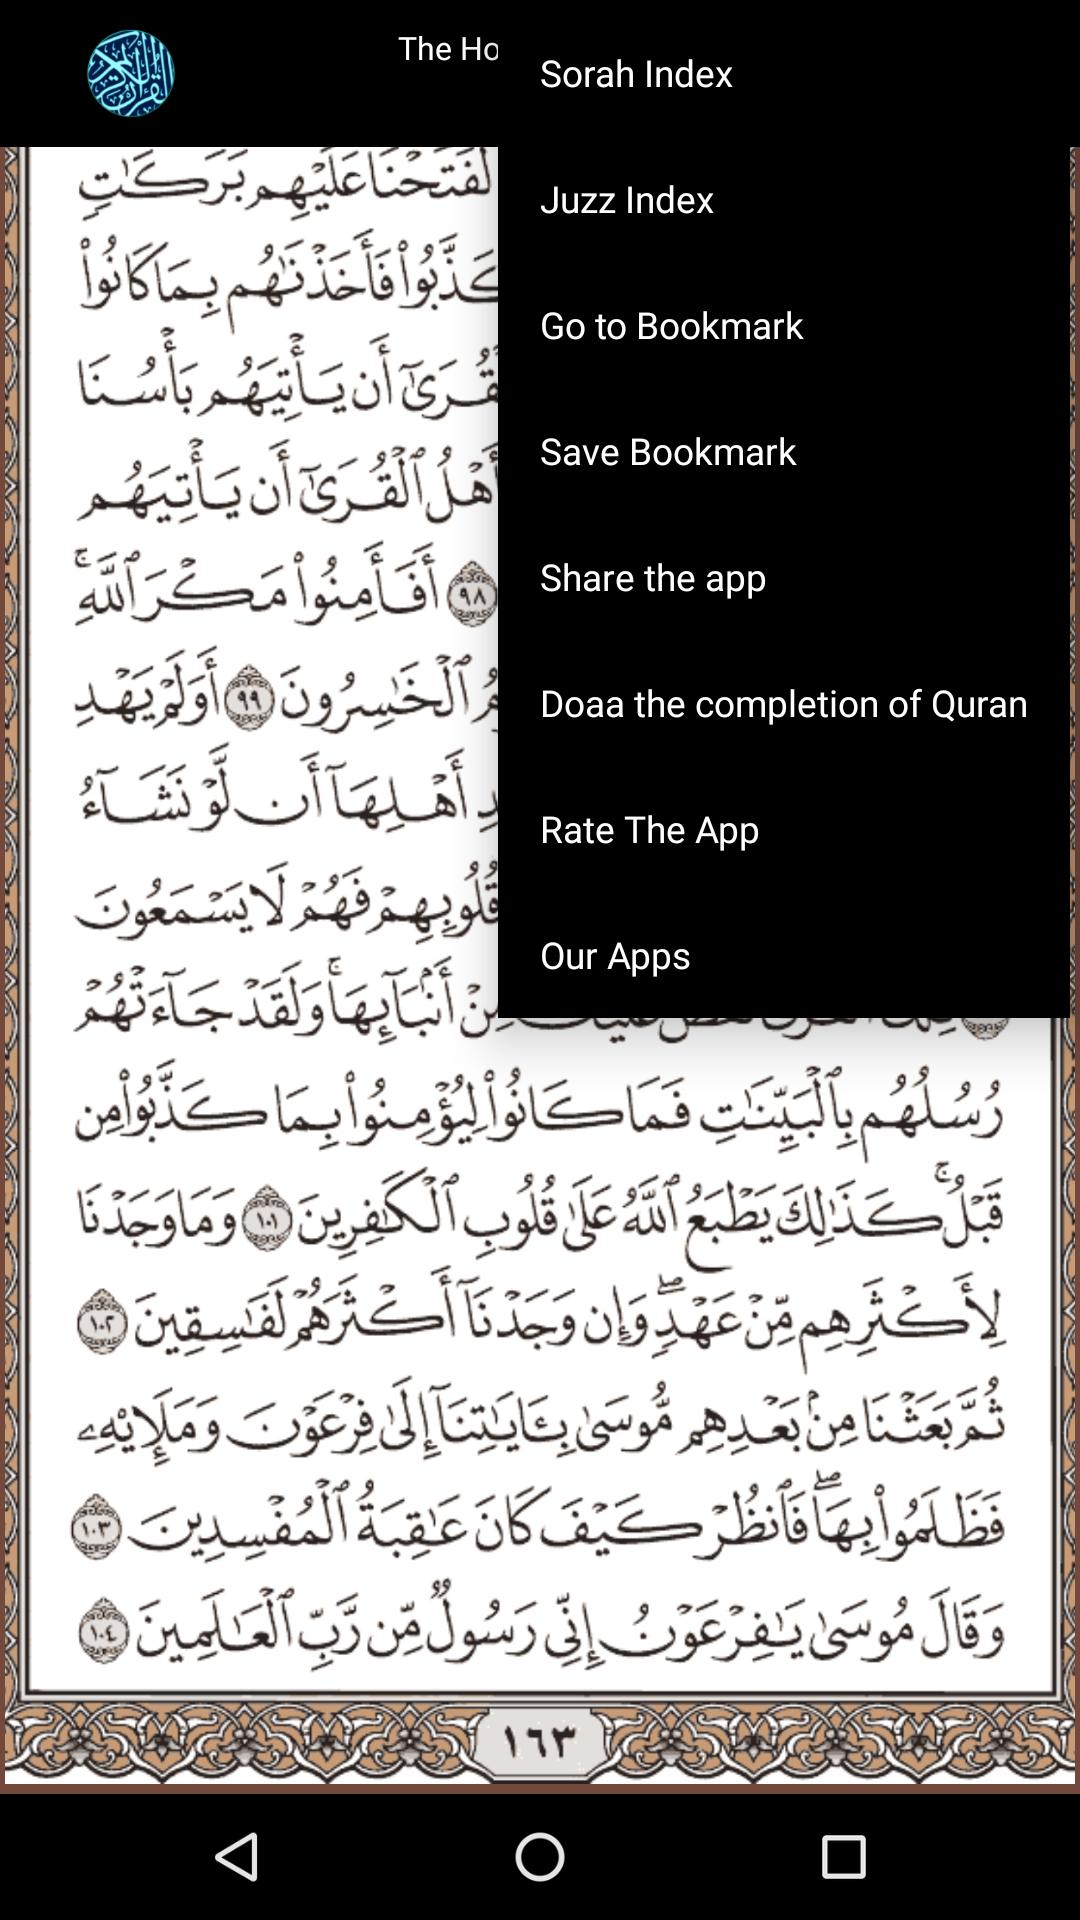 The Ho
Sorah Index
Juzz Index
Go to Bookmark
Save Bookmark
Share the app
Doaa the completion of Quran
Rate The App
Our Apps
لَفَتَحْنَا عَلَيْهِم بَرَكَٰتٍ
كَذَّبُوا۟ فَأَخَذْنَٰهُم بِمَا كَانُوا۟
أَن يَأْتِيَهُم بَأْسُنَا
أَهْلُ ٱلْقُرَىٰٓ أَن يَأْتِيَهُم
٩٨ أَفَأَمِنُوا۟ مَكْرَ ٱللَّهِ ۚ
ٱلْخَٰسِرُونَ ٩٩ أَوَلَمْ يَهْدِ
أَهْلِهَآ أَن لَّوْ نَشَآءُ
قُلُوبِهِمْ فَهُمْ لَا يَسْمَعُونَ
مِنْ أَنۢبَآئِهَا ۚ وَلَقَدْ جَآءَتْهُمْ
رُسُلُهُم بِٱلْبَيِّنَٰتِ فَمَا كَانُوا۟ لِيُؤْمِنُوا۟ بِمَا كَذَّبُوا۟ مِن
قَبْلُ ۚ كَذَٰلِكَ يَطْبَعُ ٱللَّهُ عَلَىٰ قُلُوبِ ٱلْكَٰفِرِينَ ١٠١ وَمَا وَجَدْنَا
لِأَكْثَرِهِم مِّنْ عَهْدٍ ۖ وَإِن وَجَدْنَآ أَكْثَرَهُمْ لَفَٰسِقِينَ ١٠٢
ثُمَّ بَعَثْنَا مِنۢ بَعْدِهِم مُّوسَىٰ بِـَٔايَٰتِنَآ إِلَىٰ فِرْعَوْنَ وَمَلَإِي۟هِۦ
فَظَلَمُوا۟ بِهَا ۖ فَٱنظُرْ كَيْفَ كَانَ عَٰقِبَةُ ٱلْمُفْسِدِينَ ١٠٣
وَقَالَ مُوسَىٰ يَٰفِرْعَوْنُ إِنِّى رَسُولٌ مِّن رَّبِّ ٱلْعَٰلَمِينَ ١٠٤
١٦٣